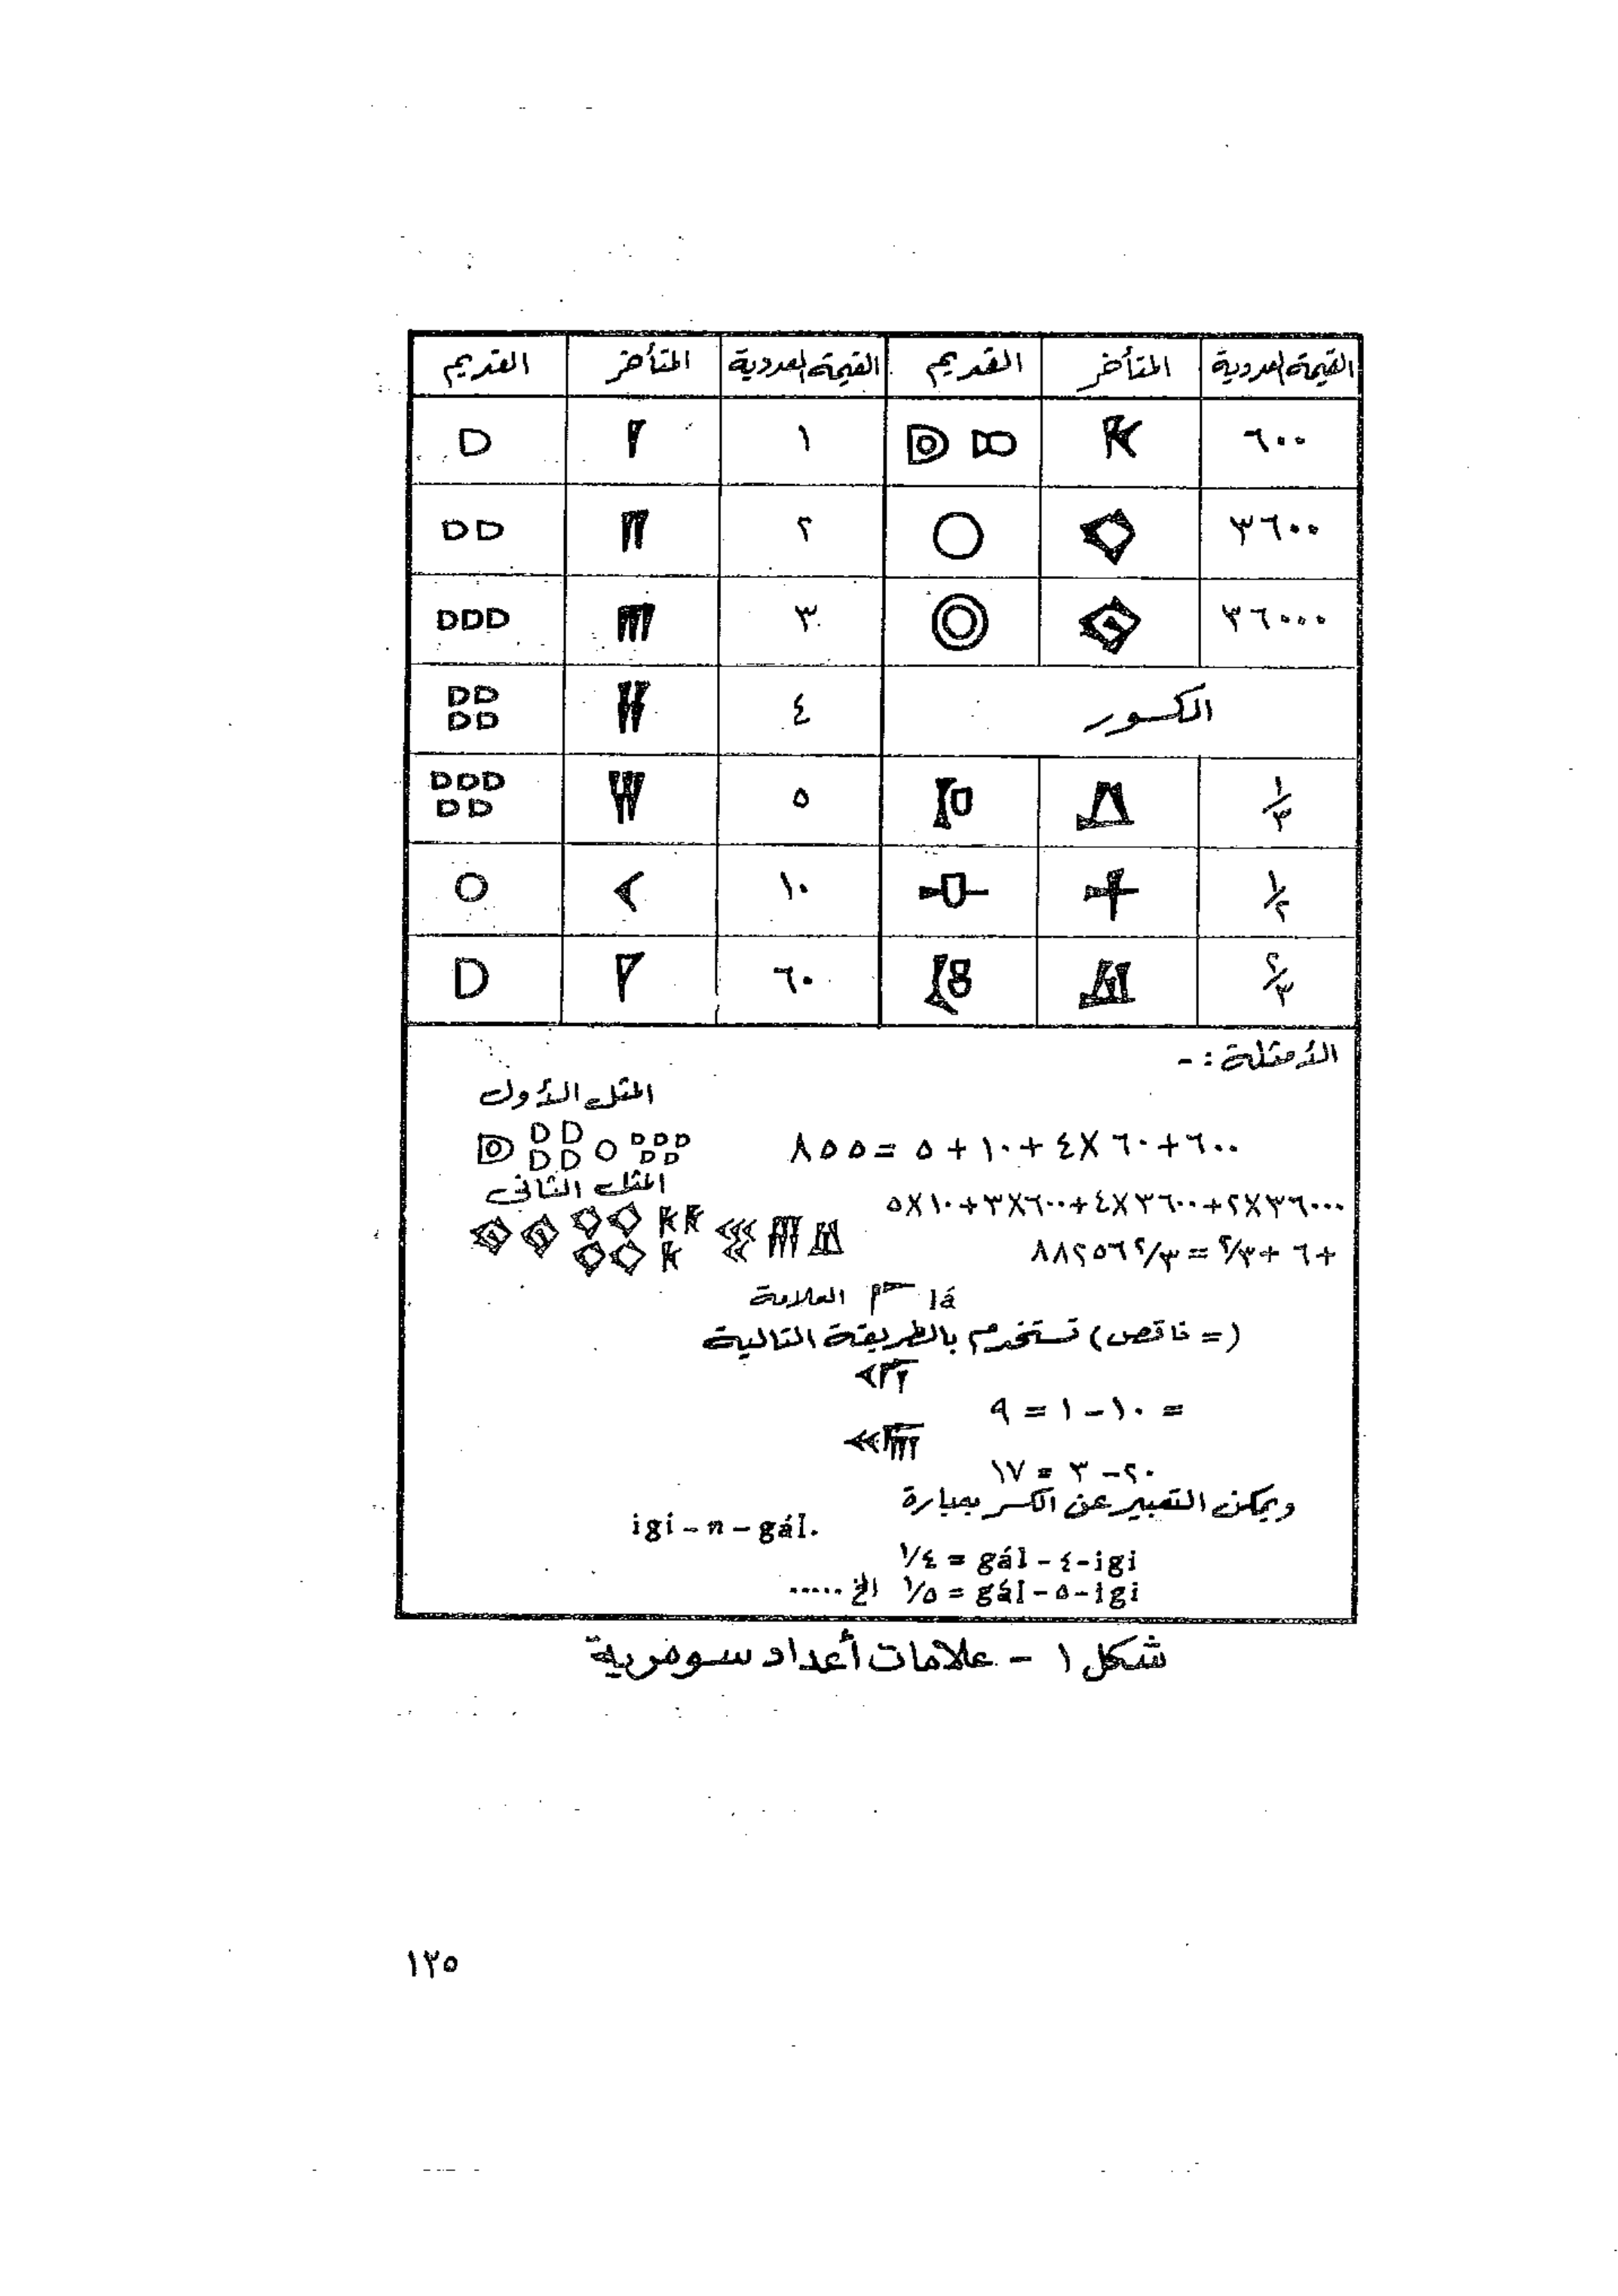 القيمة العددية المتأخر القديم القيمة العددية المتأخر القديم
٦٠٠ ١
٣٦٠٠ ٢
٣٦٠٠٠ ٣
الكسور ٤
١/٣ ٥
١/٢ ١٠
٢/٣ ٦٠
الأمثلة : -
المثل الأول
٦٠٠+٦٠×٤+١٠+٥=٨٥٥
المثل الثاني
٣٦٠٠٠×٢+٣٦٠٠×٤+٦٠٠×٣+١٠×٥
+٦+٢/٣=٨٨٢٥٦٢/٣
العلامة lá
(= ناقص) تستخدم بالطريقة التالية
= ١٠-١=٩
٢٠-٣=١٧
ويمكن التعبير عن الكسر بعبارة
igi-n-gál.
١/٤ = gál-٤-igi
١/٥ = gál-٥-igi الخ .....
شكل ١ - علامات أعداد سومرية
١٢٥